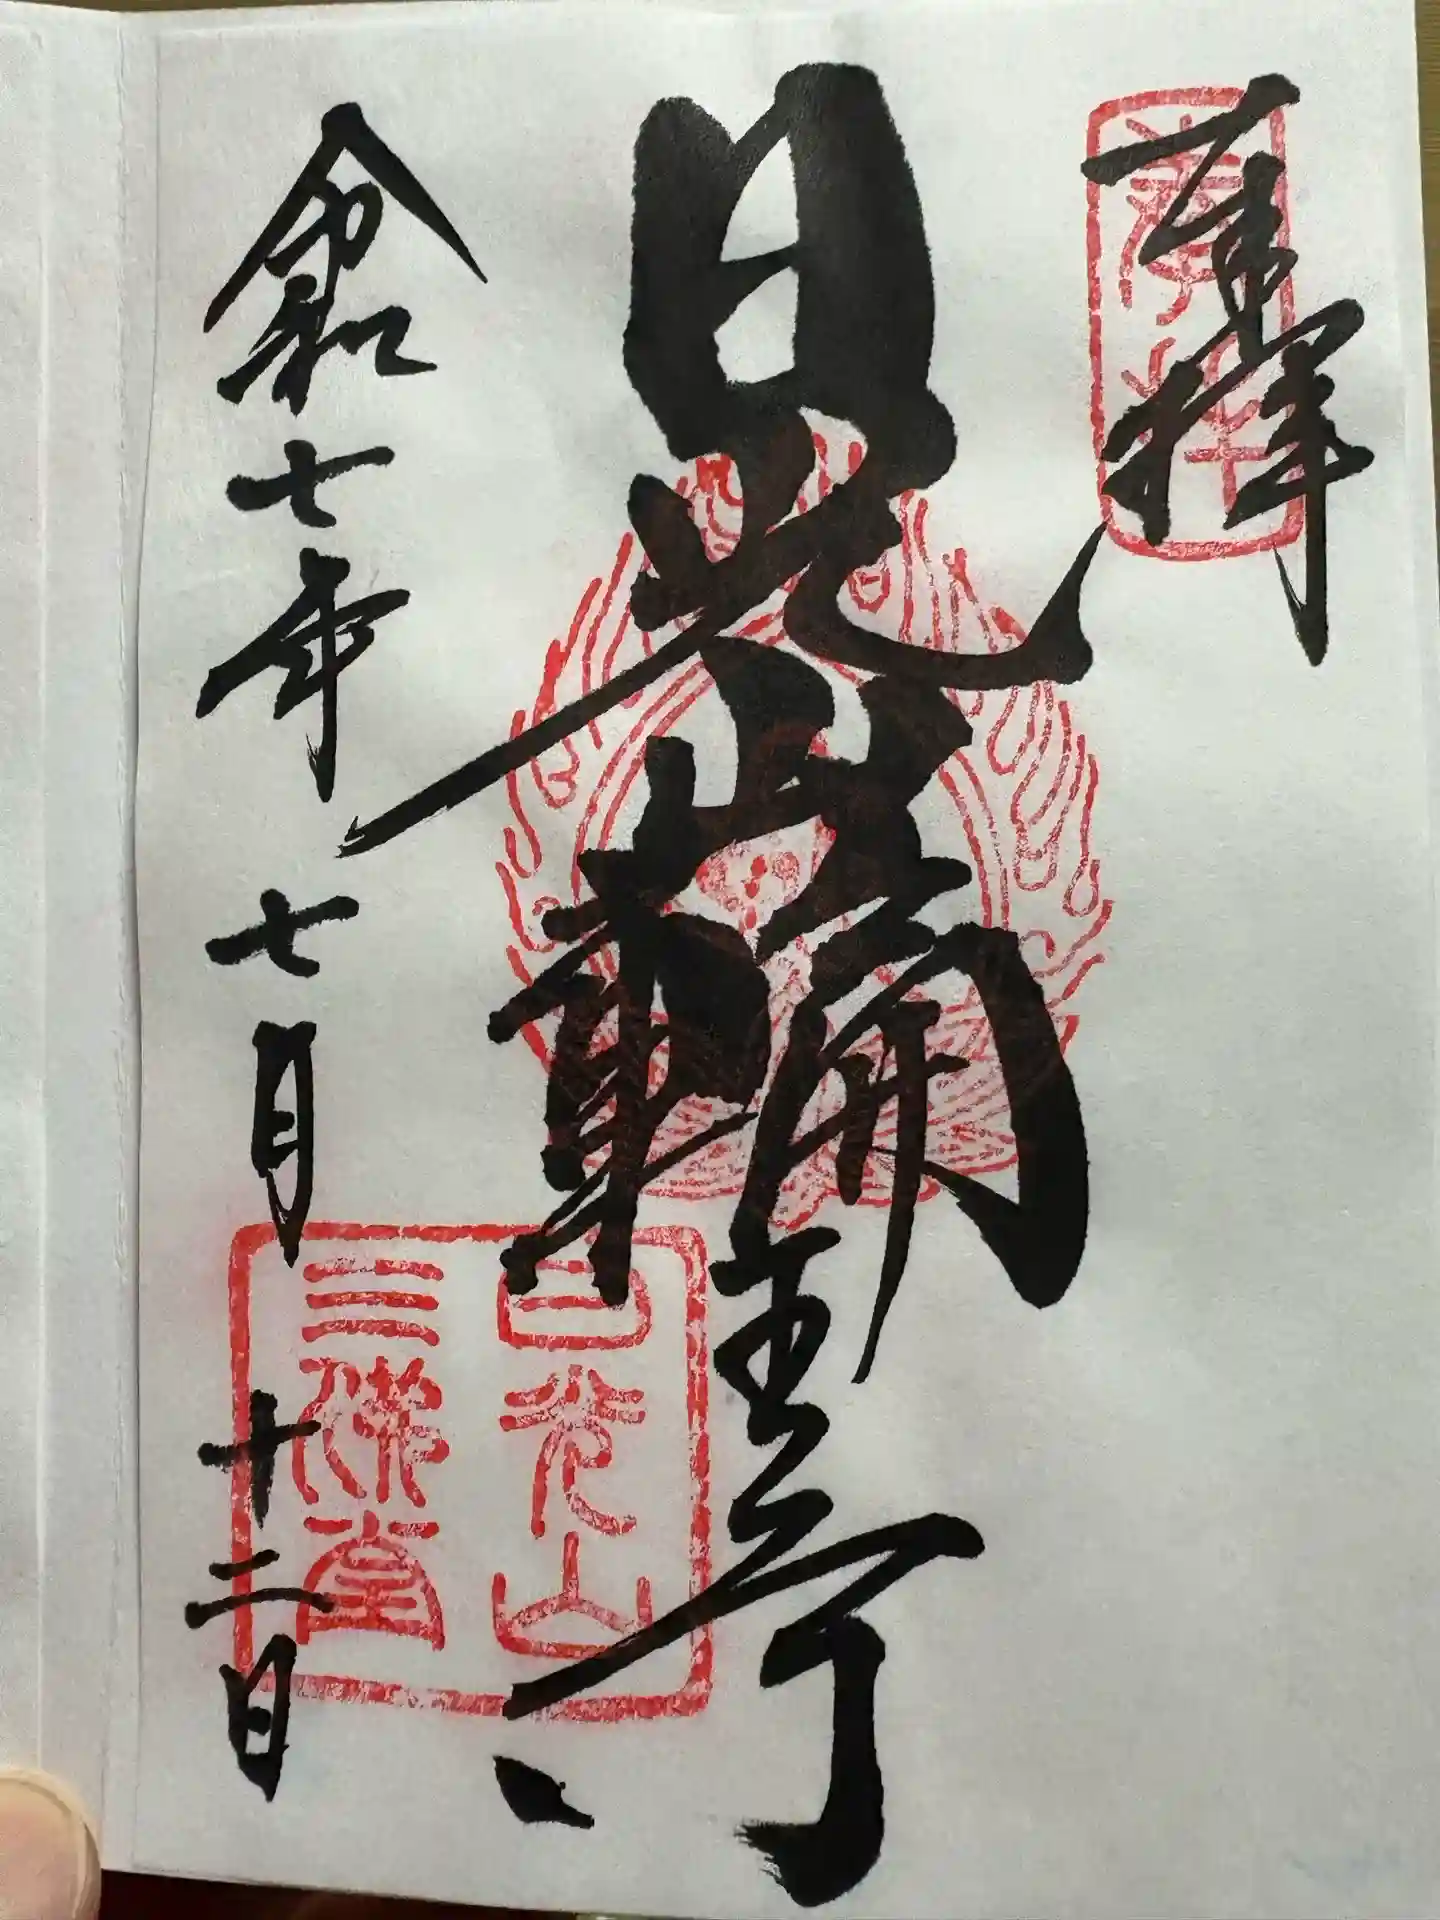 奉拝
奉拝
日光山輪王寺
令和七年七月十二日
日光山
三佛堂